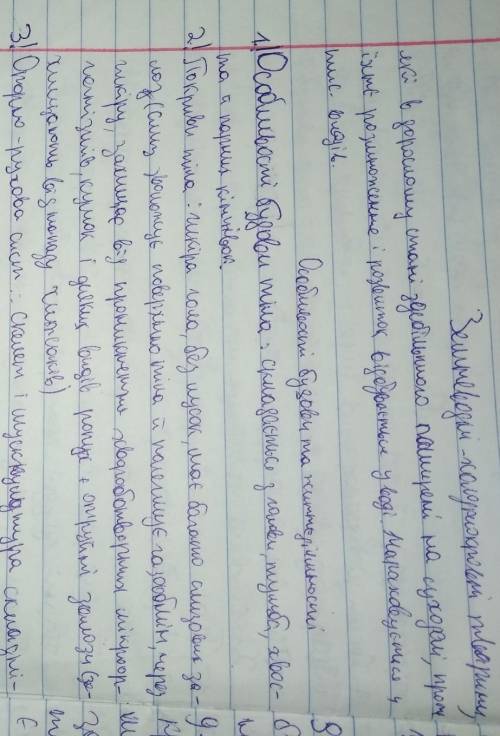 Земноводні - холоднокровні тварини,
які в дорослому стані здебільшого поширені на суходолі, проте
їхнє розмноження і розвиток відбувається у воді. Нараховується 4
тис. видів.
Особливості будови та життєдіяльності
1) Особливості будови тіла: складається з голови, тулуба, хвос-
та й парних кінцівок.
2) Покриви тіла: шкіра гола, без лусок, має багато слизових за-
лоз (слиз зволожує поверхню тіла й полегшує газообмін через
шкіру, захищає від проникнення хвороботворних мікроор-
ганізмів, кумок і деяких видів ропух є отруйні залози, за-
хищають від нападу хижаків)
3) Опорно-рухова сист.: скелет і мускулатура складні-